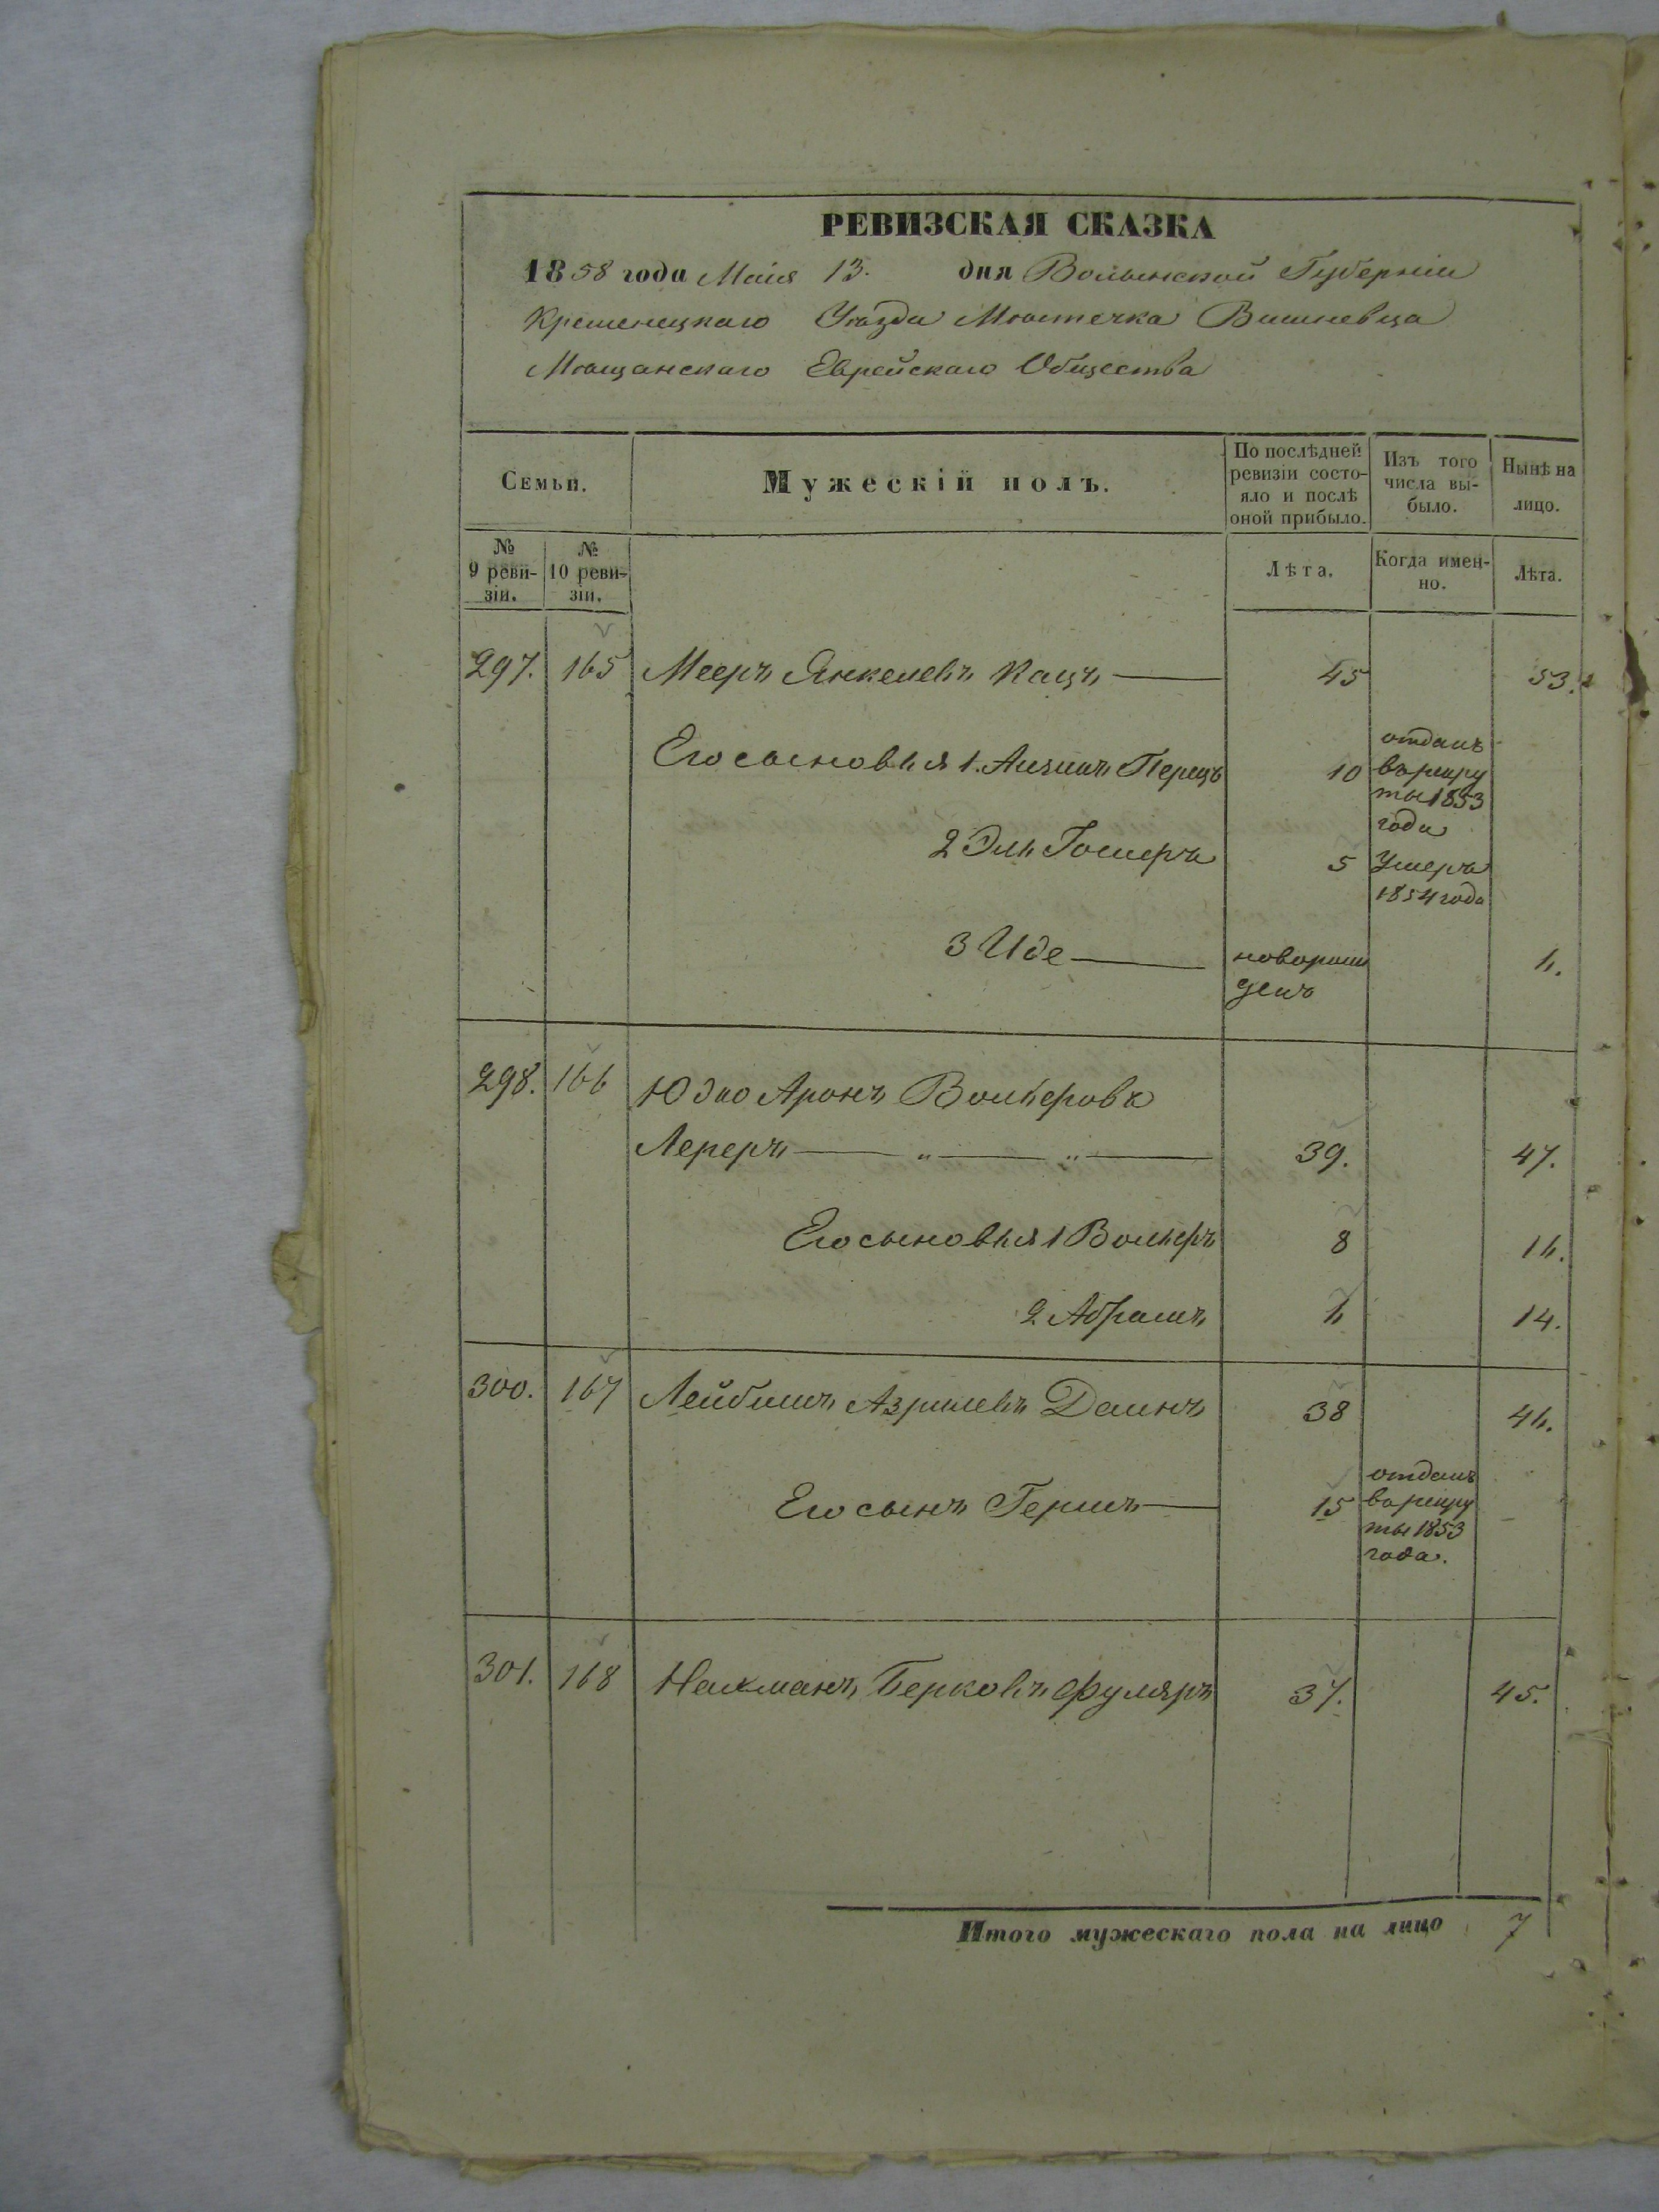 РЕВИЗСКАЯ СКАЗКА
1858 года Маія 13. дня Волынской Губерніи
Кременецкаго Уѣзда Мѣстечка Вишневца
Мѣщанскаго Еврейскаго Общества
Семьи.
Мужескій полъ.
По послѣдней ревизіи состо-
яло и послѣ оной прибыло.
Изъ того числа вы-
было.
Нынѣ на лицо.
№ 9 реви-
зіи.
№ 10 реви-
зіи.
Лѣта.
Когда имен-
но.
Лѣта.
297. 165 Мееръ Янкелевъ Кацъ 45 53.
Его сыновья 1. Перецъ 10
отданъ
в рекру
ты 1853
года
2 Эль 5
Умеръ
1854 года
3 Иде
новорож
денъ
6.
298. 166 Юдко Аронъ Вольферовъ
Лереръ — " — " — 39. 47.
Его сыновья 1 Вольферъ 8 16.
2 Абрамъ 6 14.
300. 167 Лейбишъ Азрилевъ Даинъ 38 46.
Его сынъ Гершъ 15
отданъ
в рекру
ты 1853
года.
301. 168 Нахманъ Берковъ Фуляръ 37. 45.
Итого мужескаго пола на лицо 7